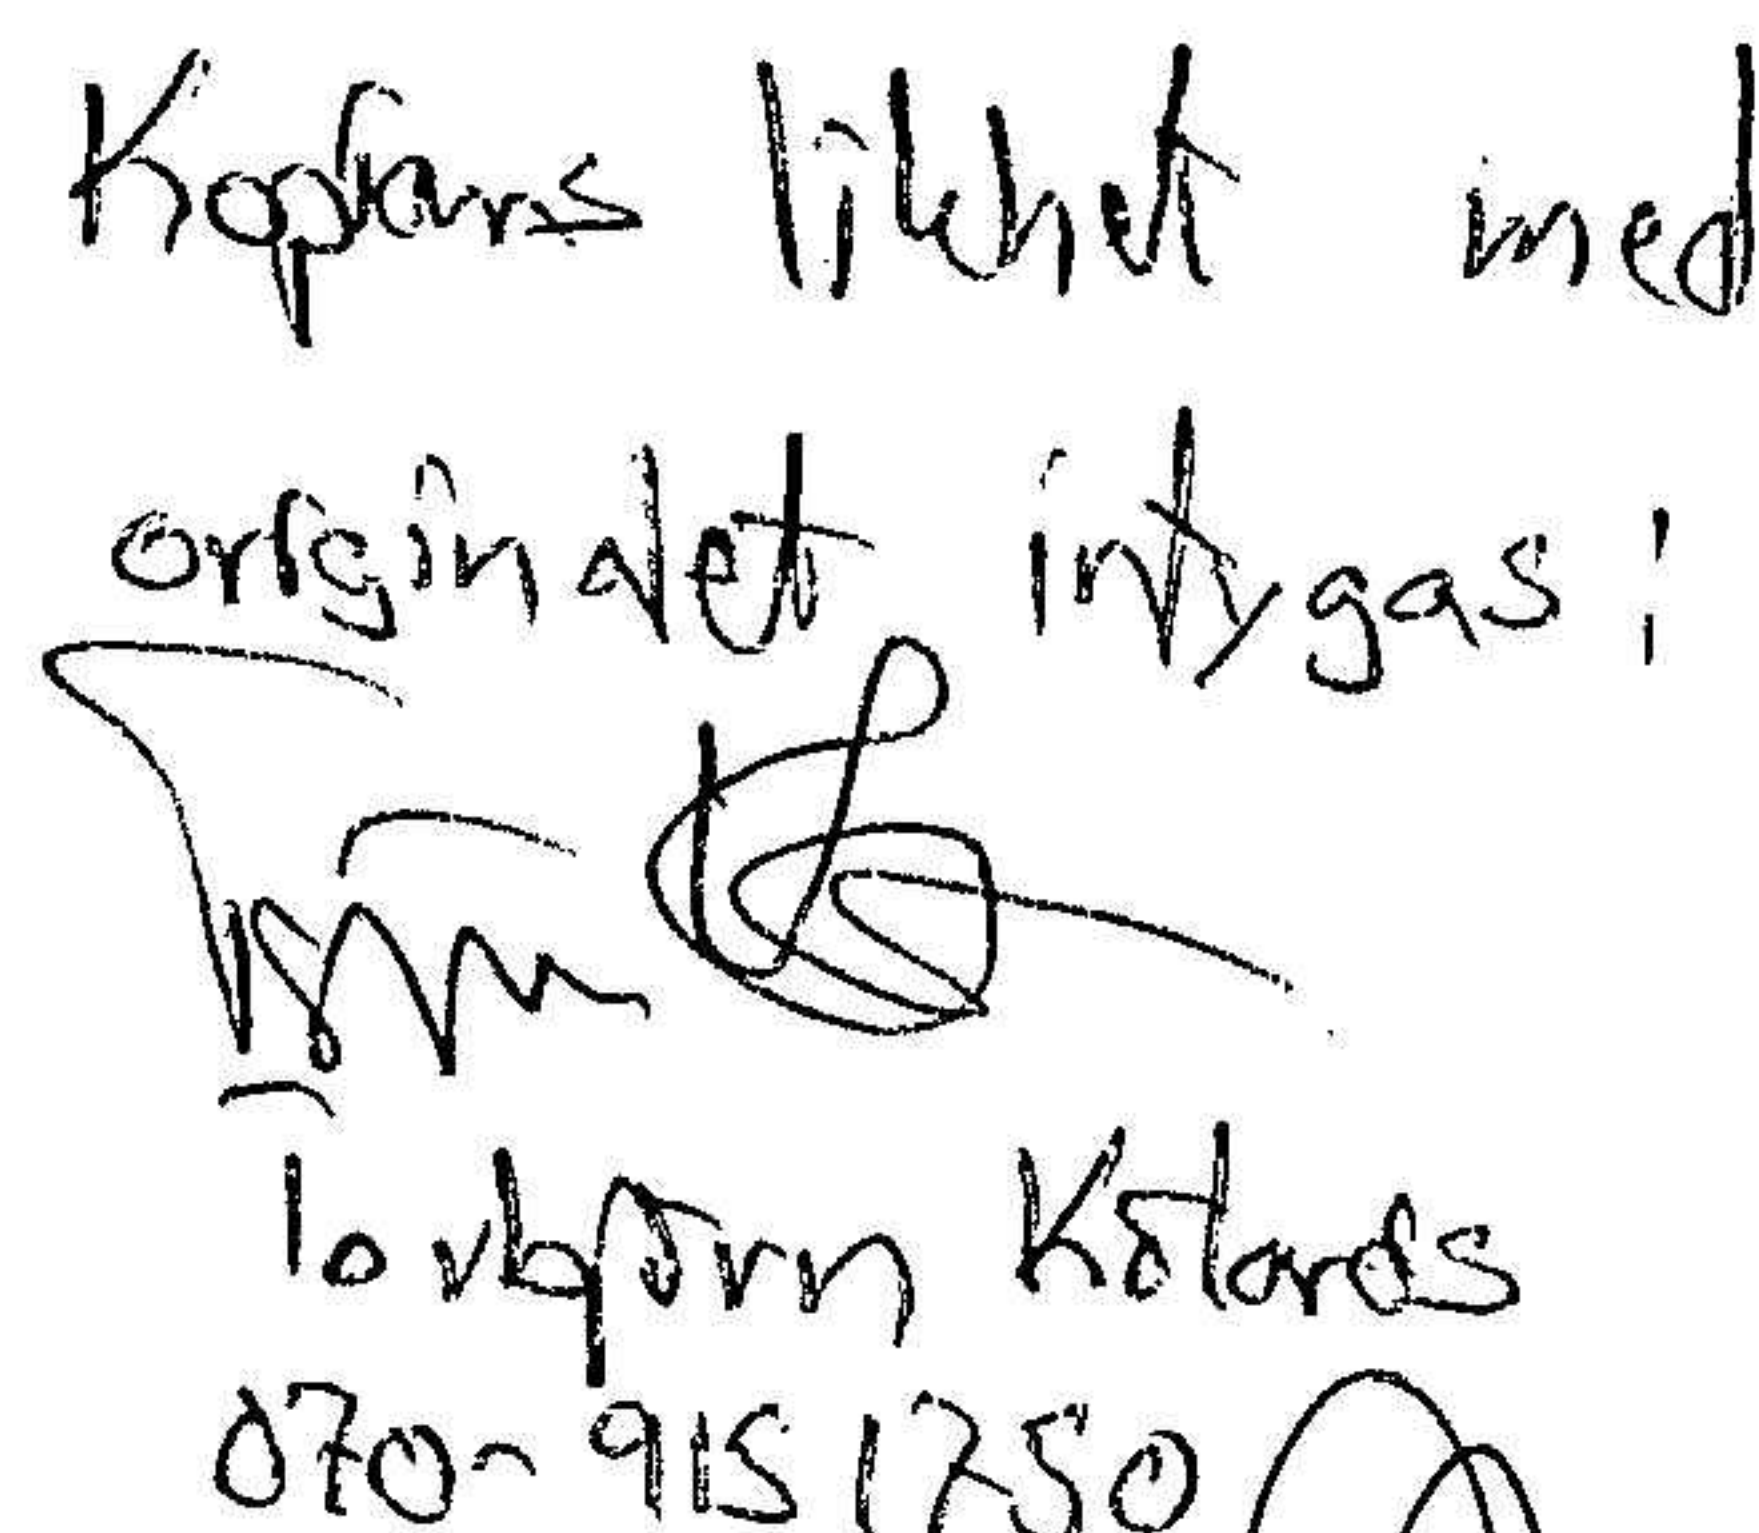 Kopians likhet med
originalet intygas!
Torbjörn Kötarås
070-9151750